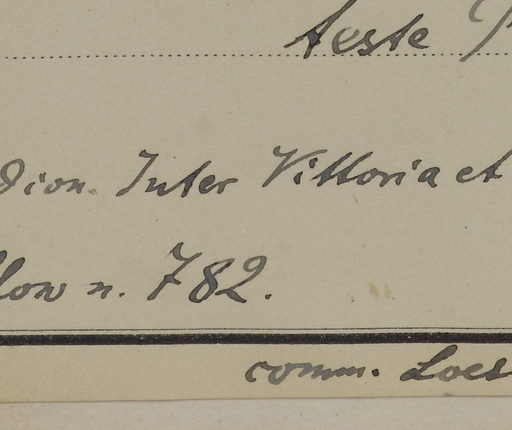 teste
Dion. Inter Vittoria et
low n. 782.
comm. Loes